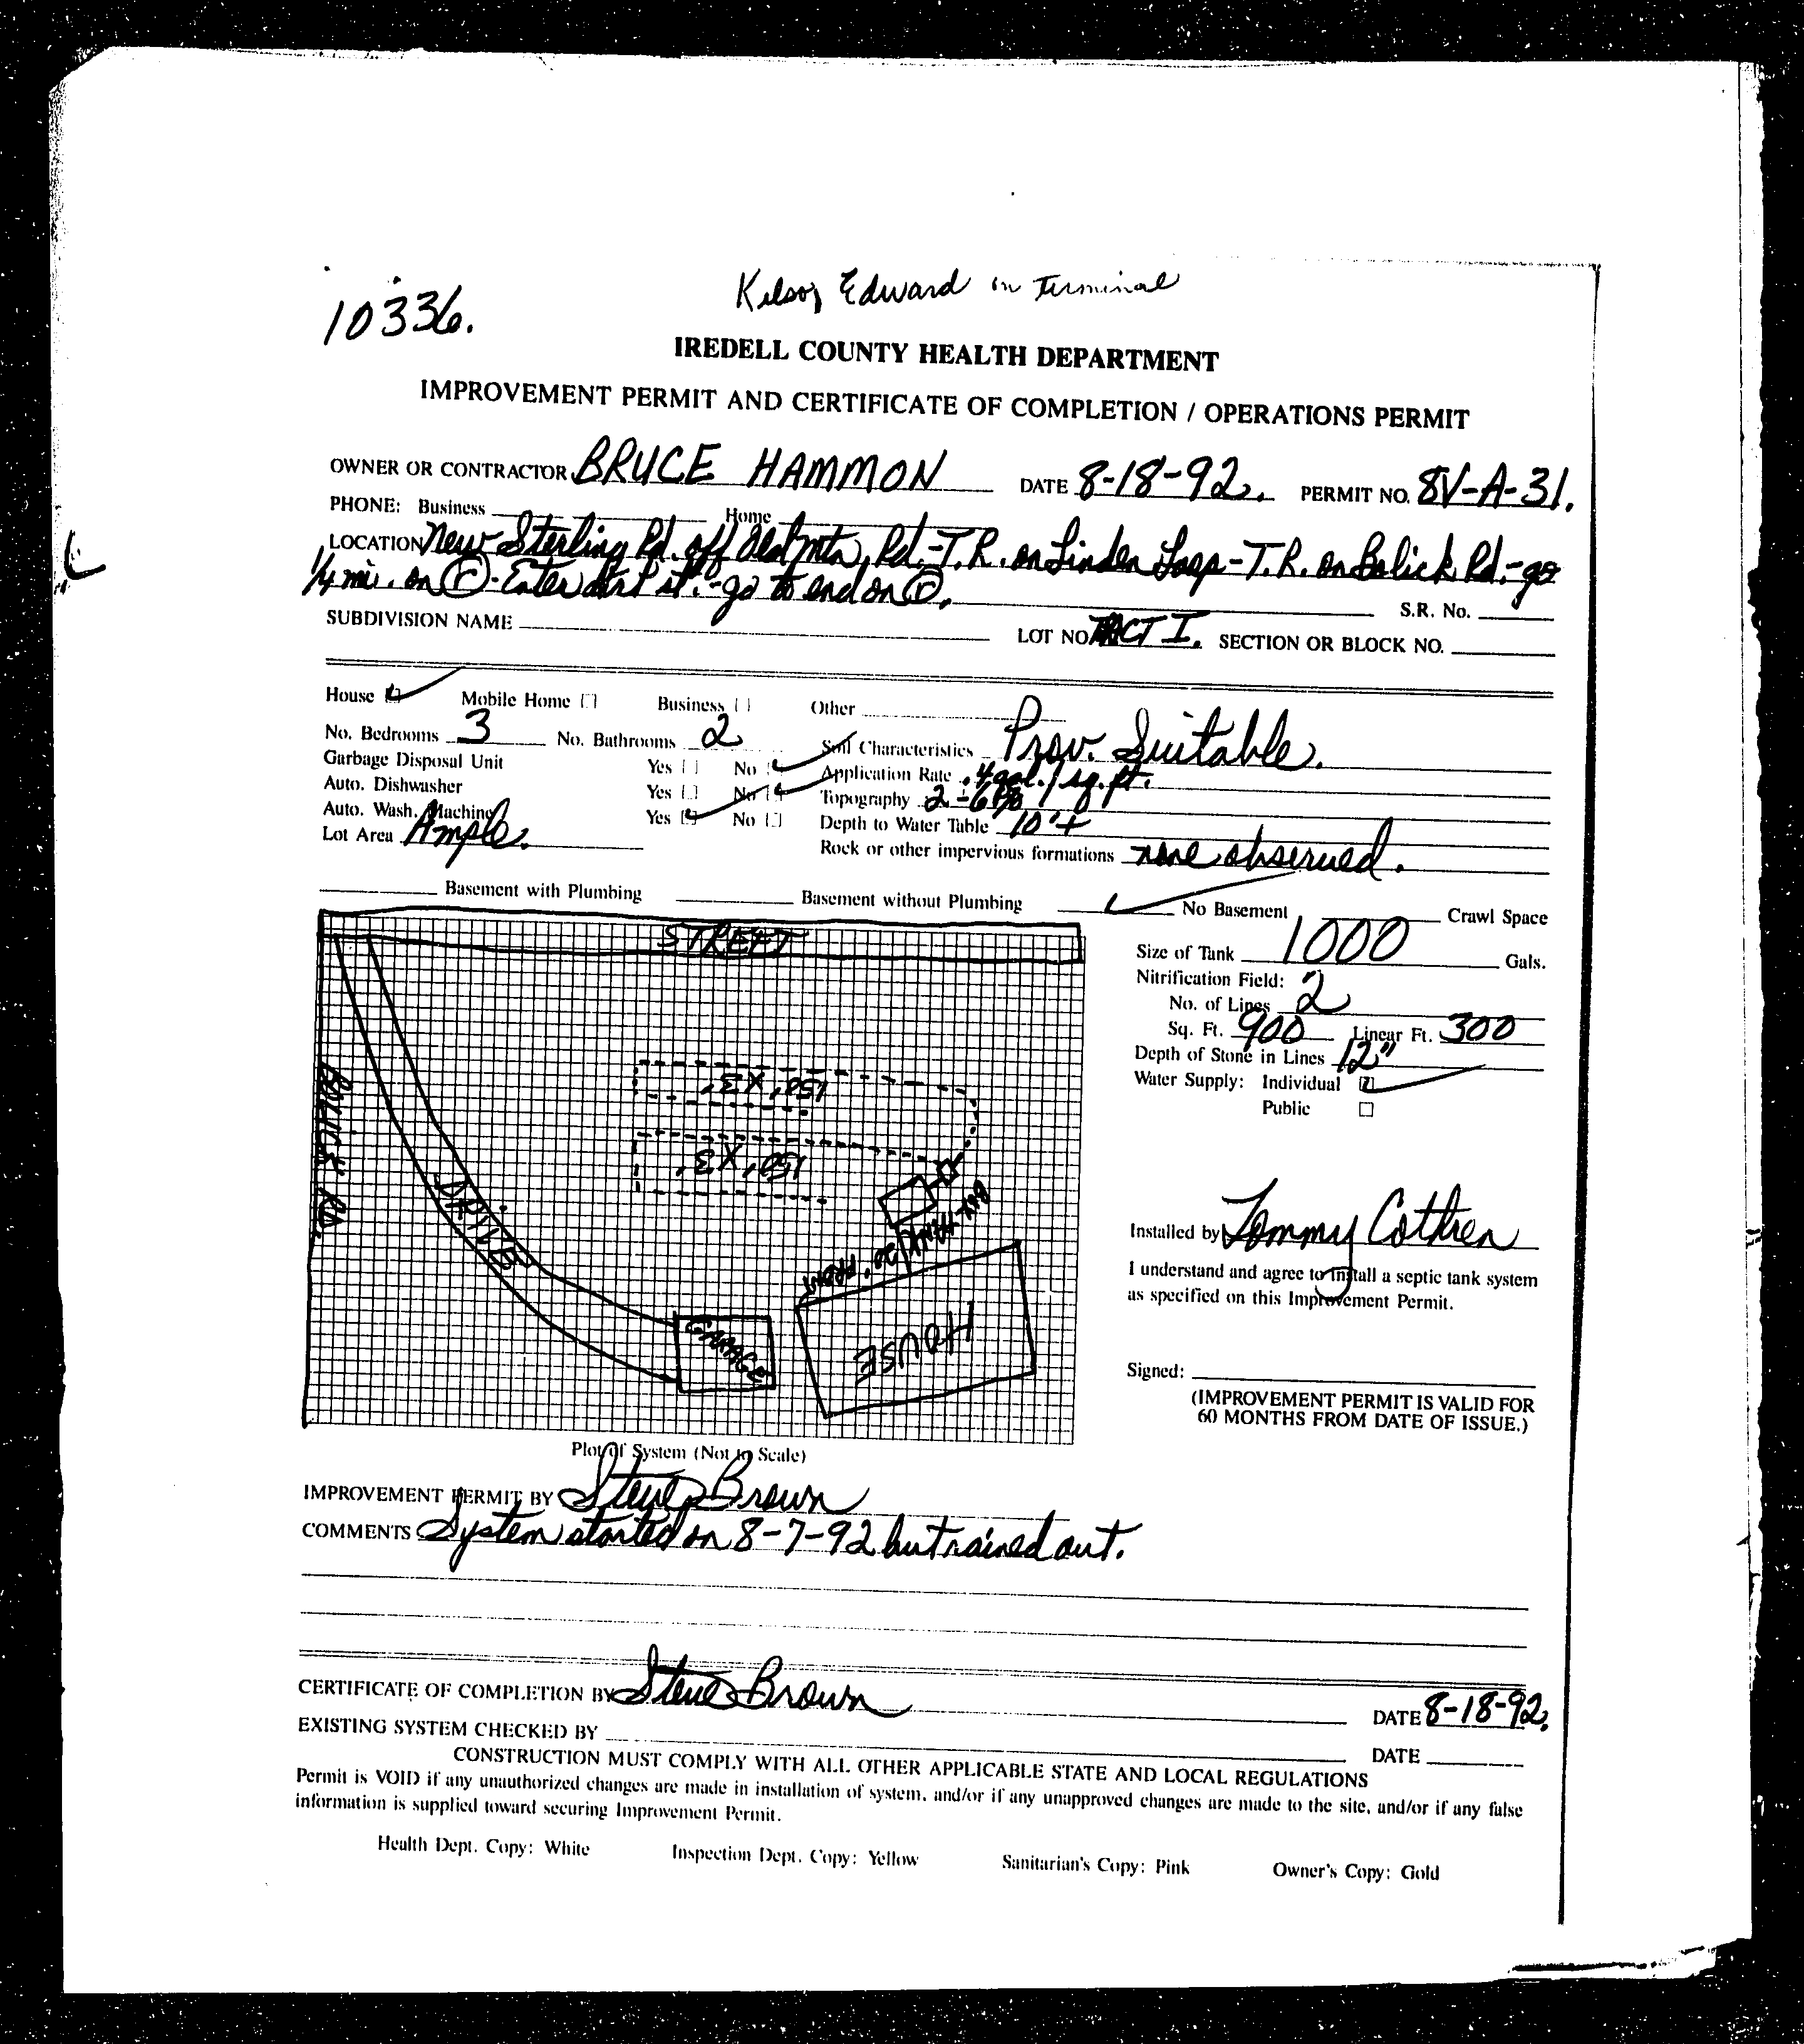 10336.
Kelsoy Edward in Terminal
IREDELL COUNTY HEALTH DEPARTMENT
IMPROVEMENT PERMIT AND CERTIFICATE OF COMPLETION / OPERATIONS PERMIT
OWNER OR CONTRACTOR BRUCE HAMMON DATE 8-18-92. PERMIT NO. 8V-A-31.
PHONE: Business Home
LOCATION New Sterling Rd. off Old Mtn. Rd.-T.R. on Linden Loop-T.R. on Bolick Rd.-go
1/4 mi. on (r)-Enter dirt st.-go to end on (r). S.R. No.
SUBDIVISION NAME LOT NO. TRACT I. SECTION OR BLOCK NO.
House Mobile Home Business Other
No. Bedrooms 3 No. Bathrooms 2 Soil Characteristics Prov. Suitable.
Garbage Disposal Unit Yes No Application Rate .4 gal./sq.ft.
Auto. Dishwasher Yes No Topography 2-6%
Auto. Wash. Machine Yes No Depth to Water Table 10'+
Lot Area Ample. Rock or other impervious formations none observed.
Basement with Plumbing Basement without Plumbing No Basement Crawl Space
STREET
BOLICK RD.
DRIVE
150' X 3'
150' X 3'
GARAGE
HOUSE
Size of Tank 1000 Gals.
Nitrification Field:
No. of Lines 2
Sq. Ft. 900 Linear Ft. 300
Depth of Stone in Lines 12"
Water Supply: Individual
Public
Installed by Tommy Cothren
I understand and agree to install a septic tank system
as specified on this Improvement Permit.
Signed:
(IMPROVEMENT PERMIT IS VALID FOR
60 MONTHS FROM DATE OF ISSUE.)
Plot of System (Not to Scale)
IMPROVEMENT PERMIT BY Steve Brown
COMMENTS System started on 8-7-92 but rained out.
CERTIFICATE OF COMPLETION BY Steve Brown DATE 8-18-92.
EXISTING SYSTEM CHECKED BY DATE
CONSTRUCTION MUST COMPLY WITH ALL OTHER APPLICABLE STATE AND LOCAL REGULATIONS
Permit is VOID if any unauthorized changes are made in installation of system, and/or if any unapproved changes are made to the site, and/or if any false
information is supplied toward securing Improvement Permit.
Health Dept. Copy: White Inspection Dept. Copy: Yellow Sanitarian's Copy: Pink Owner's Copy: Gold